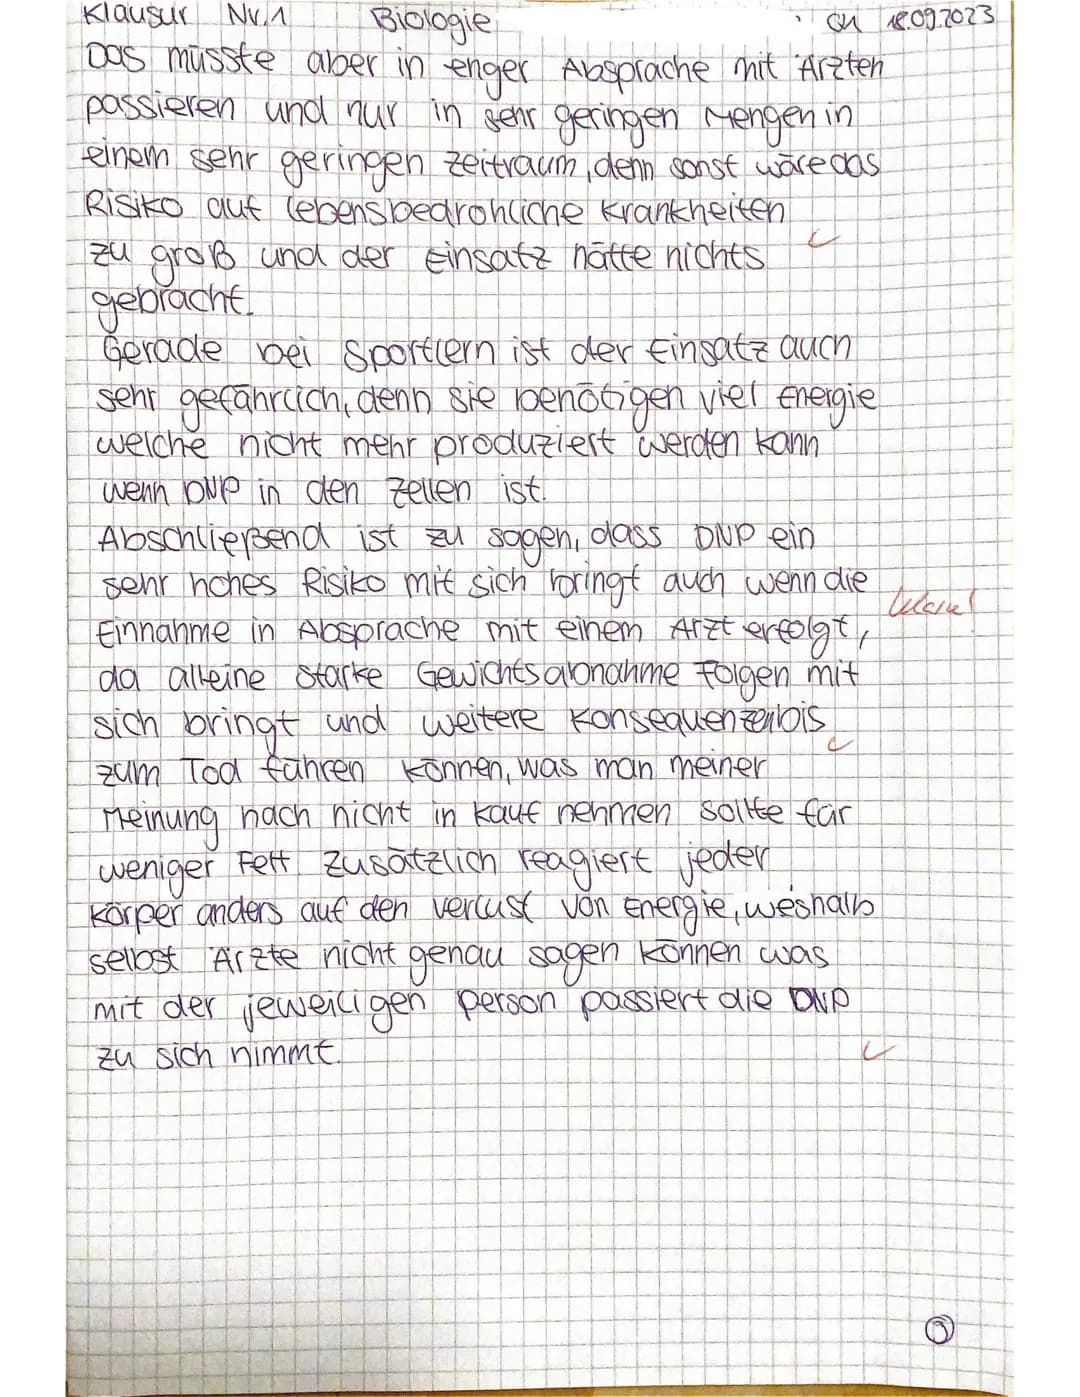 Klausur Nr. 1 Biologie 18.09.2023
Das müsste aber in enger Absprache mit Ärzten
passieren und nur in sehr geringen Mengen in
einem sehr geringen Zeitraum, denn sonst wäre das
Risiko auf lebensbedrohliche Krankheiten
zu groß und der Einsatz hätte nichts
gebracht.
Gerade bei Sportlern ist der Einsatz auch
sehr gefährlich, denn sie benötigen viel Energie
welche nicht mehr produziert werden kann
wenn DNP in den Zellen ist.
Abschließend ist zu sagen, dass DNP ein
sehr hohes Risiko mit sich bringt auch wenn die
Einnahme in Absprache mit einem Arzt erfolgt,
da alleine starke Gewichtsabnahme Folgen mit
sich bringt und weitere Konsequenzen bis
zum Tod führen können, was man meiner
Meinung nach nicht in kauf nehmen sollte für
weniger Fett. Zusätzlich reagiert jeder
Körper anders auf den Verlust von Energie, weshalb
selbst Ärzte nicht genau sagen können was
mit der jeweiligen Person passiert die DNP
zu sich nimmt.